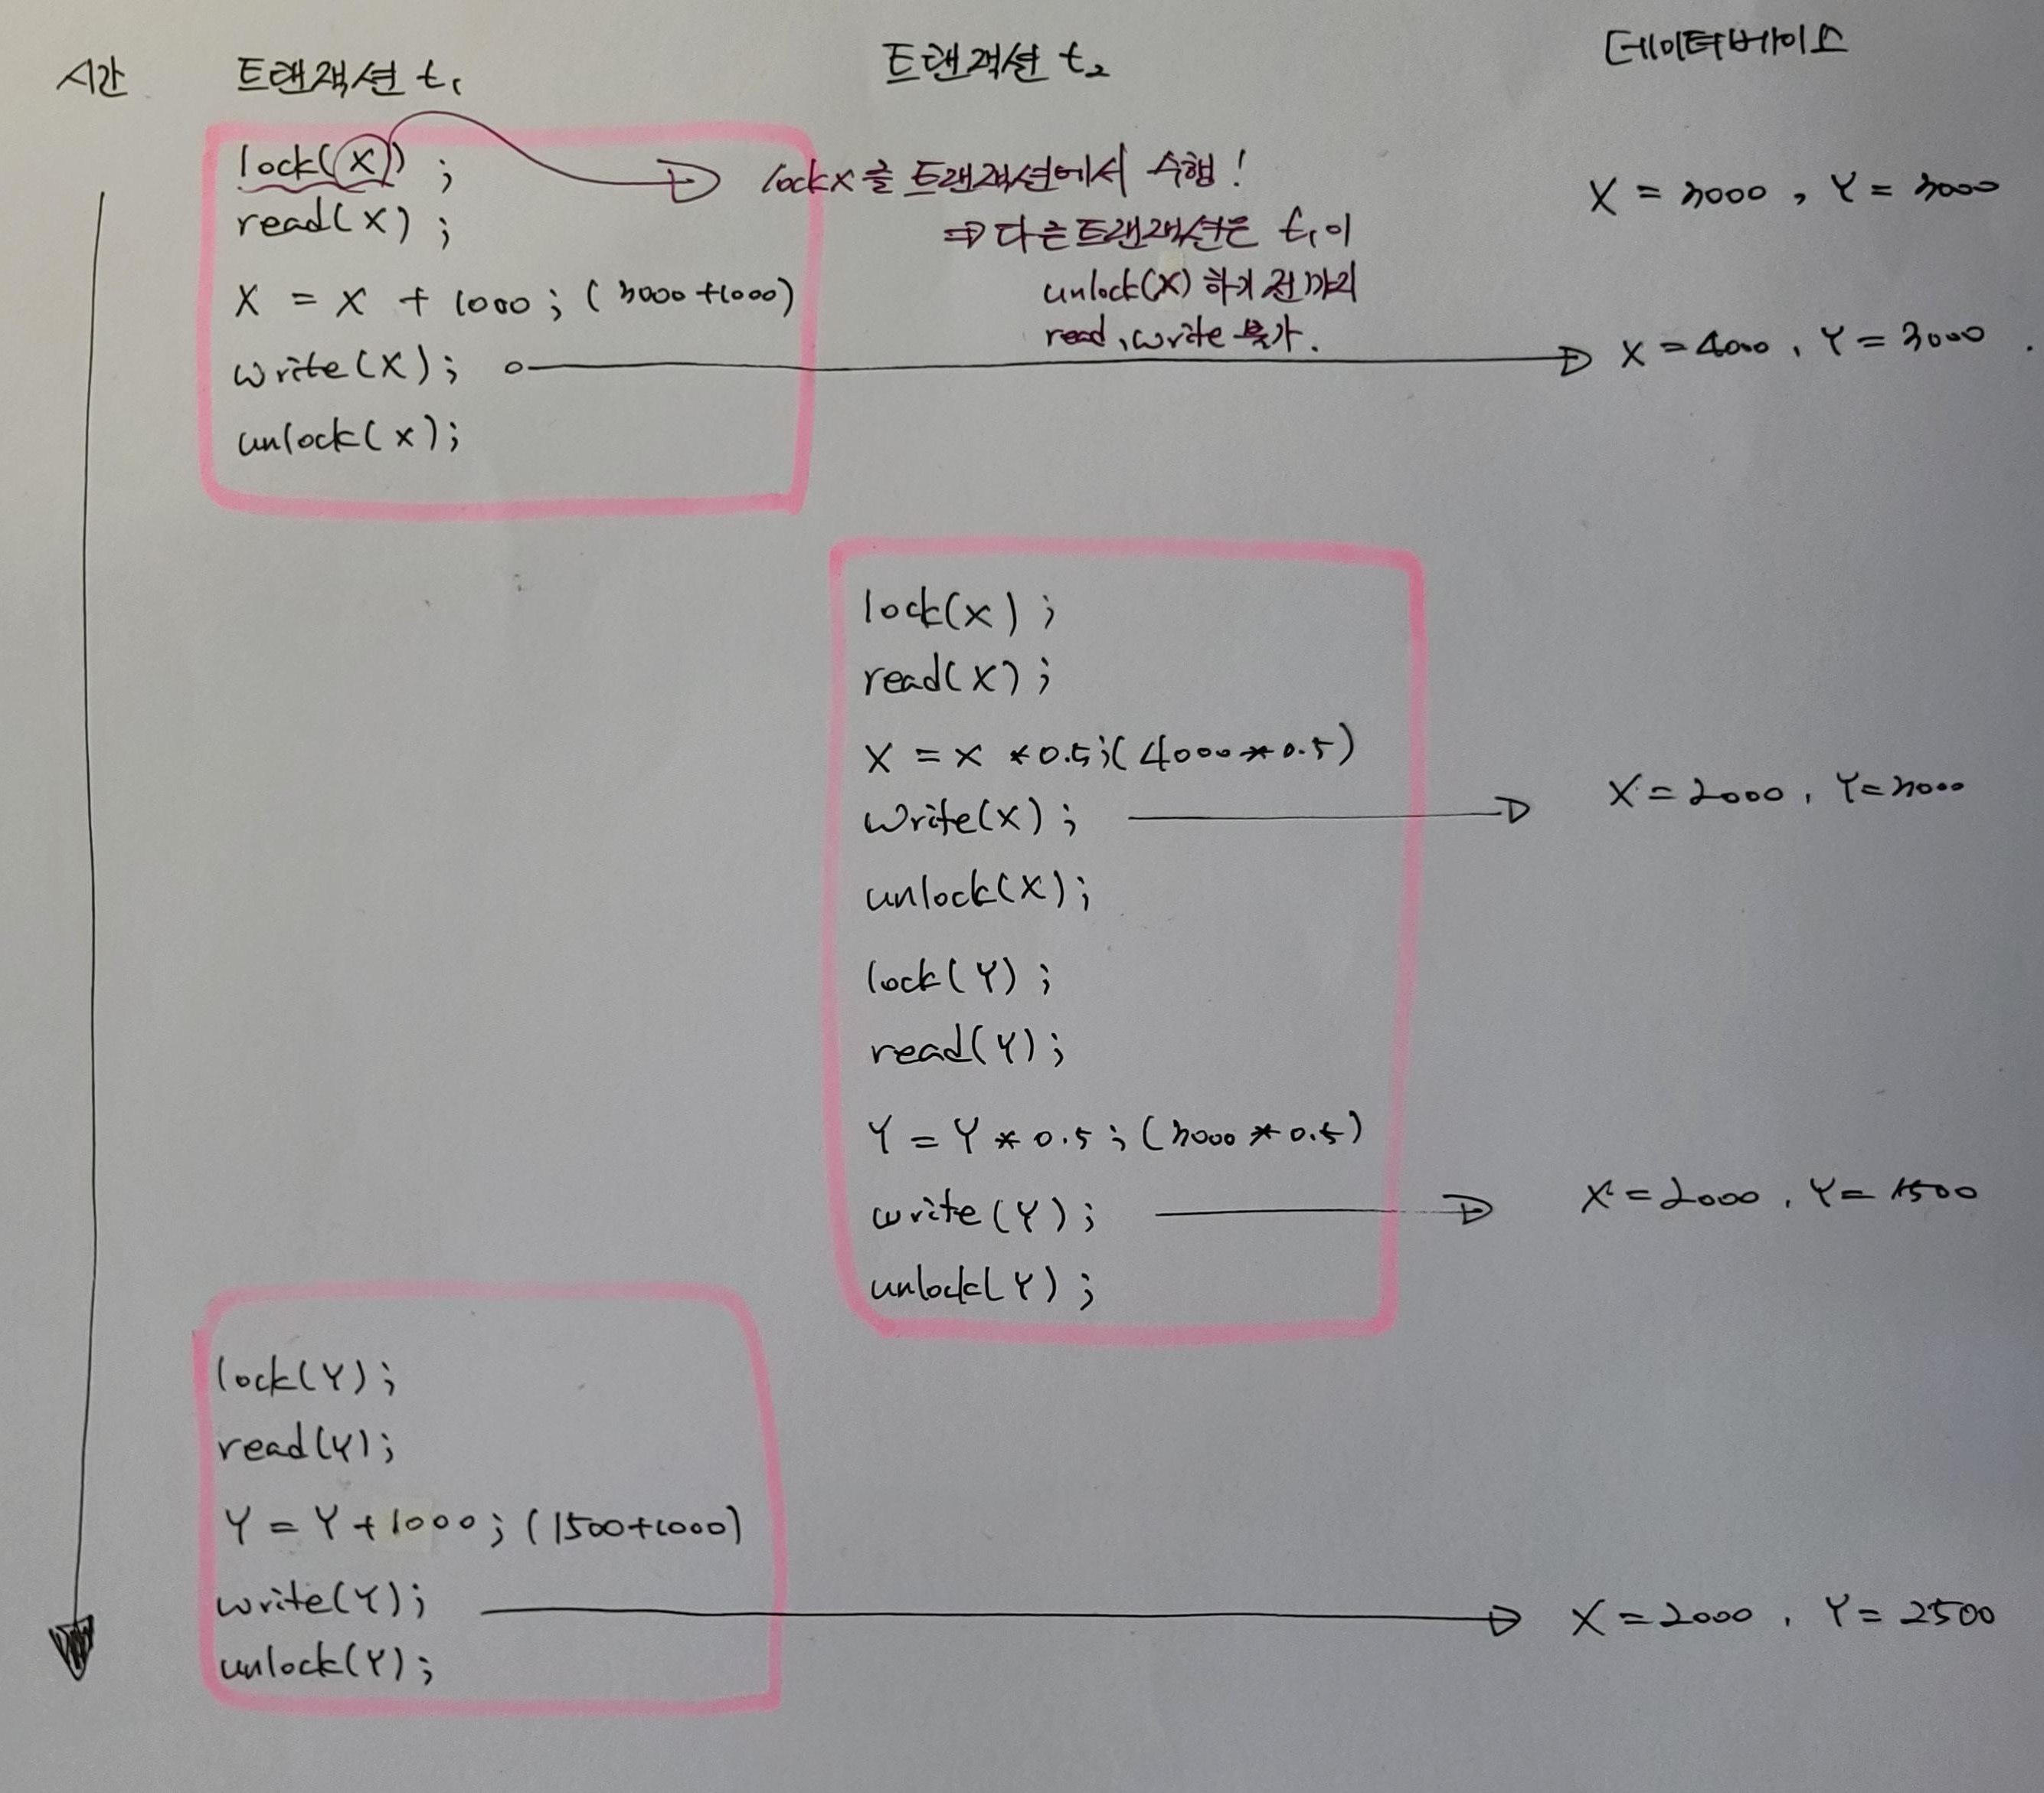 시간 트랜잭션 t₁ 트랜잭션 t₂ 데이터베이스
lock(X);
lock X를 트랜잭션에서 수행!
X = 3000, Y = 3000
read(X);
⇒ 다른 트랜잭션은 t₁이
unlock(X) 하기 전까지
read, write 불가.
X = X + 1000; (3000+1000)
write(X);
X = 4000, Y = 3000.
unlock(X);
lock(X);
read(X);
X = X * 0.5; (4000*0.5)
write(X);
X = 2000, Y = 3000
unlock(X);
lock(Y);
read(Y);
Y = Y * 0.5; (3000 * 0.5)
write(Y);
X = 2000, Y = 1500
unlock(Y);
lock(Y);
read(Y);
Y = Y + 1000; (1500+1000)
write(Y);
X = 2000, Y = 2500
unlock(Y);